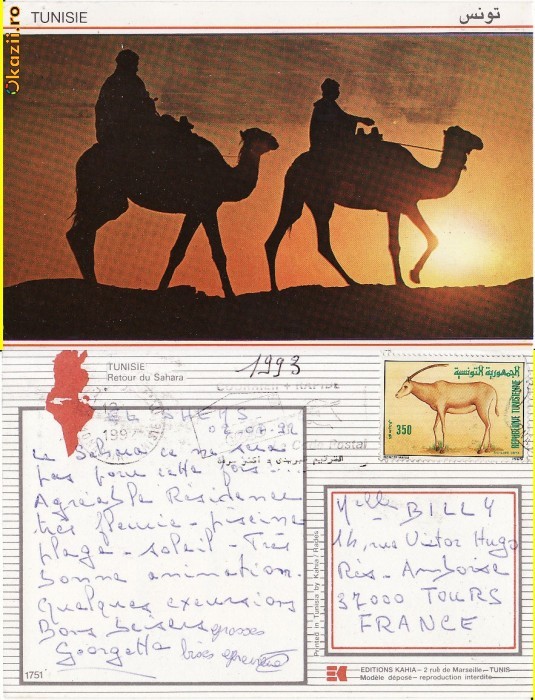 Okazii.ro
TUNISIE
تونس
TUNISIE
Retour du Sahara
1993
COURRIER + RAPIDE
Code Postal
الترقيم البريدي
الجمهورية التونسية
REPUBLIQUE TUNISIENNE
350
EL SHEMS
02-07-92
Le Sahara ce ne sera
pas pour cette fois...
Agréable Résidence
très fleurie - piscine
plage - soleil - Très
bonne animation.
Quelques excursions
Bons Baisers grosses
Georgette bises
Printed in Tunisia by Kahia Rades
Melle BILLY
14, rue Victor Hugo
Rés. Amboise
37000 TOURS
FRANCE
1751
EDITIONS KAHIA - 2 rue de Marseille - TUNIS
Modèle déposé - reproduction interdite